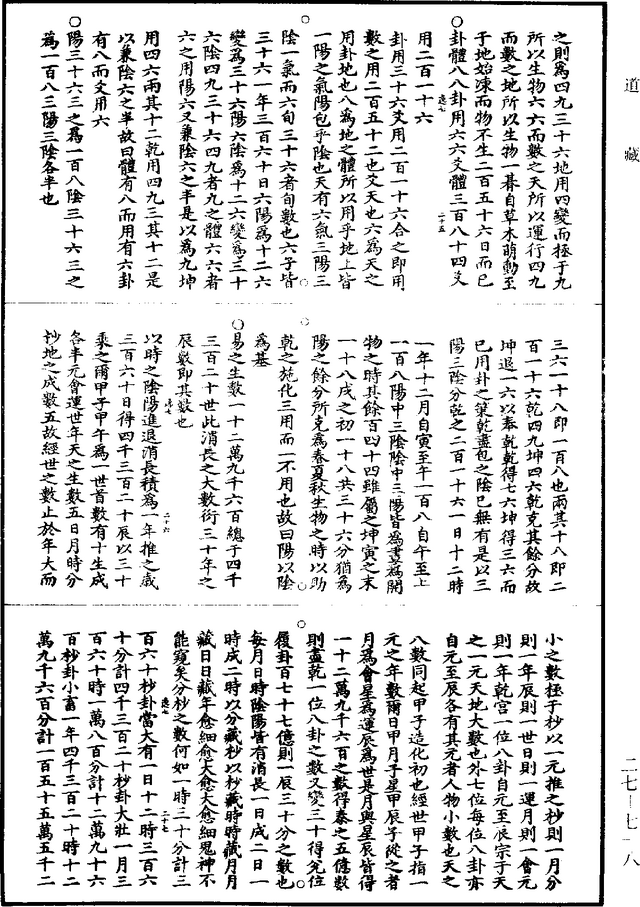 道藏
之則為四九三十六地用四變而極于九
所以生物六六而數之天所以運行四九
而數之地所以生物一朞自草木萌動至
于地始凍而物不生二百五十六日而已
○卦體八八卦用六六爻體三百八十四爻
用二百一十六
卦用三十六爻用二百一十六合之即用
數之用二百五十二也爻天也六為天之
用卦地也八為地之體所以用乎地上皆
一陽之氣陽包乎陰也天有六氣三陽三
陰一氣而六旬三十六者旬數也六子皆
三十六一年三百六十日六陽為十二六
變為三十六陽六陰為十二六變為三十
六陰四九三十六四九者九之體六六者
六之用陽六又兼陰六之半是以為九坤
用四六兩其十二乾用四九三其十二是
以兼陰六之半故曰體有八而用有六卦
有八而爻用六
○陽三十六三之為一百八陰三十六三之
為一百八三陽三陰各半也
三六一十八即一百八也兩其十八即二
百一十六乾四九坤四六乾克其餘分故
坤退一六以奉乾乾得七六坤得三六而
已用卦之策乾盡包之陰已無有是以三
陽三陰分乾之二百一十六一日十二時
一年十二月自寅至午一百八自午至上
一百八陽中三陰陰中三陽皆為晝為開
物之時其餘百四十四雖屬之坤寅之末
一十八戌之初一十八共三十六分猶為
陽之餘分所克為春夏秋生物之時以助
乾之施化三用而一不用也故曰陽以陰
為基
○易之生數一十二萬九千六百總于四千
三百二十世此消長之大數衍三十年之
辰數即其數也
以時之陰陽進退消長積為一年推之歲
三百六十日得四千三百二十辰以三十
乘之爾甲子甲午為一世首數有十生成
各半元會運世年天之生數五日月時分
抄地之成數五故經世之數止於年大而
小之數極于杪以一元推之杪則一月分
則一年辰則一世日則一運月則一會元
則一年乾宮一位八卦自元至辰宗于天
之一元天地大數也外七位每位八卦亦
自元至辰各有其元者人物小數也天之
八數同起甲子造化初也經世甲子指一
元之年數爾日甲月子星甲辰子從之者
月為會星為運辰為世是月與星辰皆得
一十二萬九千六百之數得泰之五億數
則盡乾一位八卦之數又變三十得兌位
履卦百七十七億則一辰三十分之數也
每月日時陰陽皆有消長一日成二日一
時成二時以分藏杪以杪藏時時藏月月
藏日日藏年愈細愈大愈大愈細鬼神不
能窺矣分杪之數何如一時三十分計三
百六十杪卦當大有一日十二時三百六
十分計四千三百二十杪卦大壯一月三
百六十時一萬八百分計十二萬九十六
百杪卦小畜一年四千三百二十時十二
萬九千六百分計一百五十五萬五千二
二七—七八